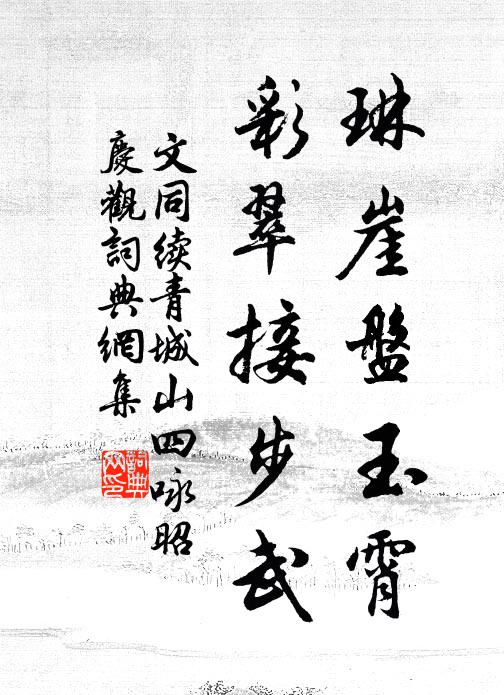 琳崖盤玉霄
彩翠接步武
文同续青城山四咏昭
慶觀詞典網集
詞典網印